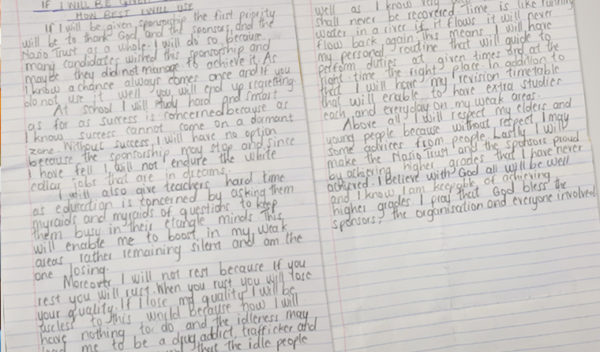 IF I WILL BE GIVEN
HOW BEST I WILL USE
If I will be given sponsorship the first priority
will be to thank God and the sponsors and the
Trust as a whole. I will do so because
many candidates wished this sponsorship and
maybe they did not manage to achieve it. As
I know a chance always comes once and if you
do not use it well you will end up regretting
At school I will study hard and smart
as far as success is concerned because as
I know success cannot come on a dormant
zone. Without success, I will have no option
because the sponsorship may stop and since
I have fell I will not endure the white
collar jobs that are in dreams.
I will also give teachers hard time
as education is concerned by asking them
myraids and myraids of questions to keep
them busy in their minds This
will enable me to boost in my weak
areas rather remaining silent and am the
one losing.
Moreover I will not rest because if you
rest you will rust. When you rust you will lose
your quality. If I lose my quality I will be
useless to this world because how I will
have nothing to do, and the idleness may
lead me to be a drug addict, trafficker and
thus the idle people
well as I know very
shall never be recorded Time is like running
water in a river if it flows it will never
flow back again this means I will have
my personal routine that will guide to
perform duties at given times and at the
right time the right place In addition to
that I will have my revision timetable
that will enable to have extra studies
each and everyday on my weak areas.
Above all I will respect my elders and
young people because without respect I may
some advices from people. Lastly I will
make the Trust and the sponsors proud
by achieving higher grades that I have never
achieved. I believe with God all will be well
and I know I am of achieving
higher grades I pray that God bless the
sponsors, the organisation and everyone involved.